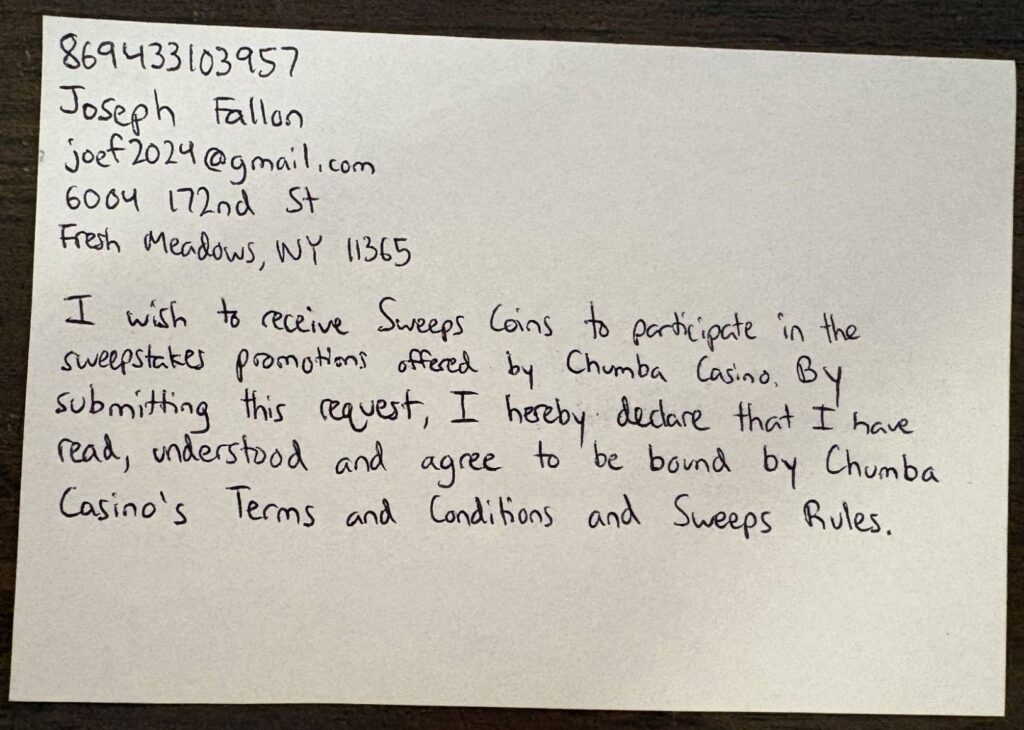 869433103957
Joseph Fallon
joef2024@gmail.com
6004 172nd St
Fresh Meadows, NY 11365
I wish to receive Sweeps Coins to participate in the
sweepstakes promotions offered by Chumba Casino. By
submitting this request, I hereby declare that I have
read, understood and agree to be bound by Chumba
Casino's Terms and Conditions and Sweeps Rules.